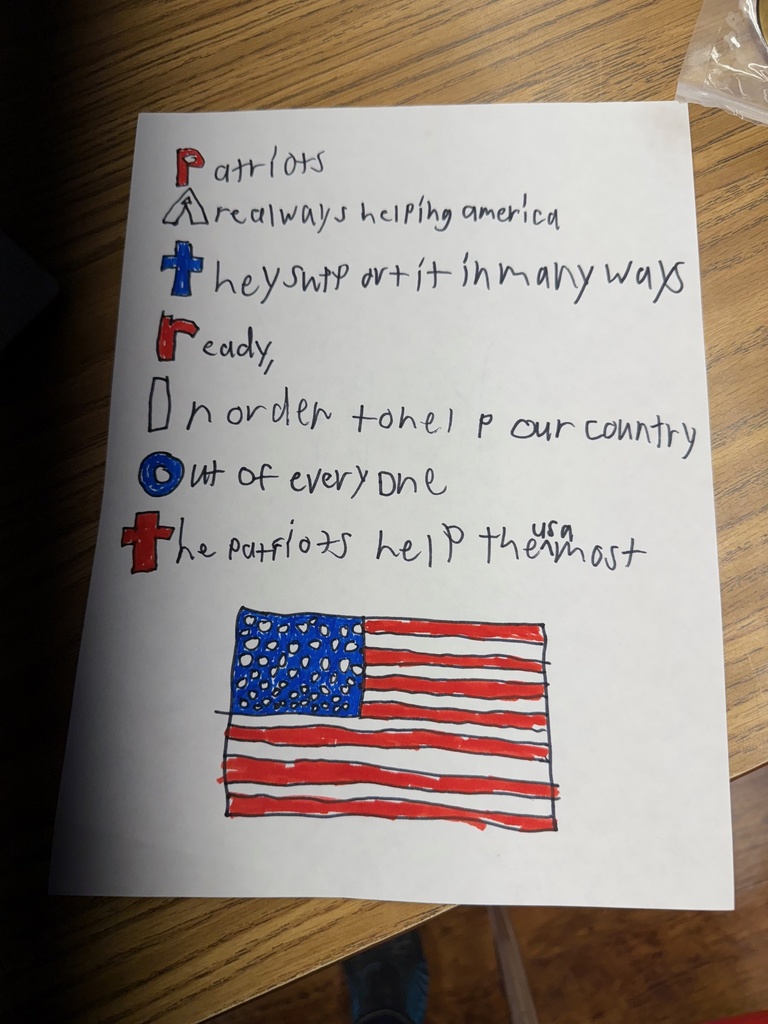 Patriots
Are always helping america
they support it in many ways
ready,
In order to help our country
Out of everyone
the patriots help the usa most